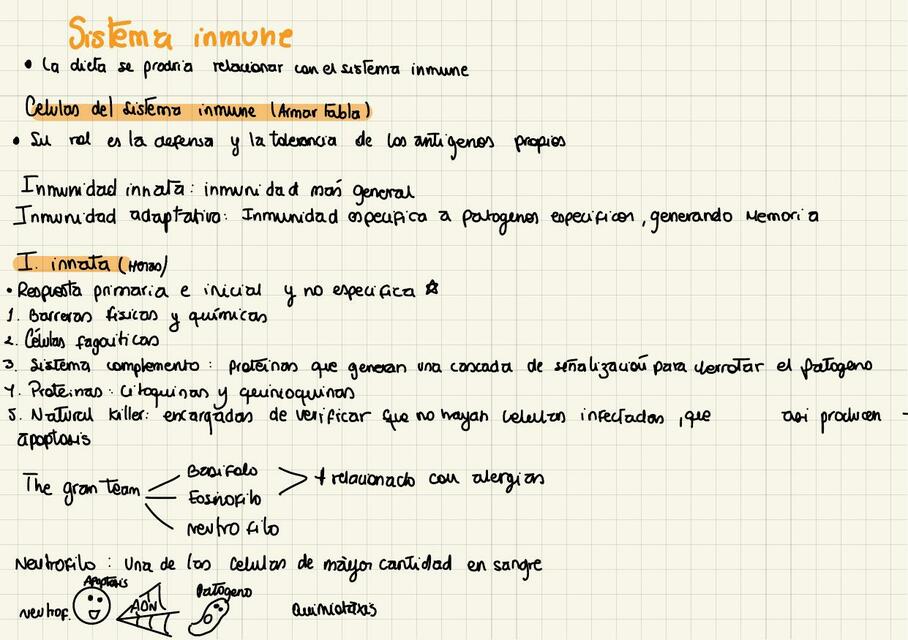 Sistema inmune
• La dieta se prodria relacionar con el sistema inmune
Celulas del sistema inmune (Armar tabla)
• Su rol es la defensa y la tolerancia de los antigenos propios
Inmunidad innata: inmunidad más general
Inmunidad adaptativa: Inmunidad especifica a patogenos especificos, generando memoria
I. innata (Horas)
• Respuesta primaria e inicial y no especifica ☆
1. Barreras físicas y químicas
2. Células fagociticas
3. Sistema complemento: proteínas que generan una cascada de señalización para derrotar el patogeno
4. Proteinas: citoquinas y quimioquinas
5. Natural killer: encargadas de verificar que no hayan celulas infectadas, que asi producen
apoptosis
The gran team
Basifalo
Eosinofilo
neutrofilo
+ relacionado con alergias
Neutrofilo: Una de las celulas de mayor cantidad en sangre
Apoptosis
neutrof.
ADN
Patogeno
Quimiotaxis